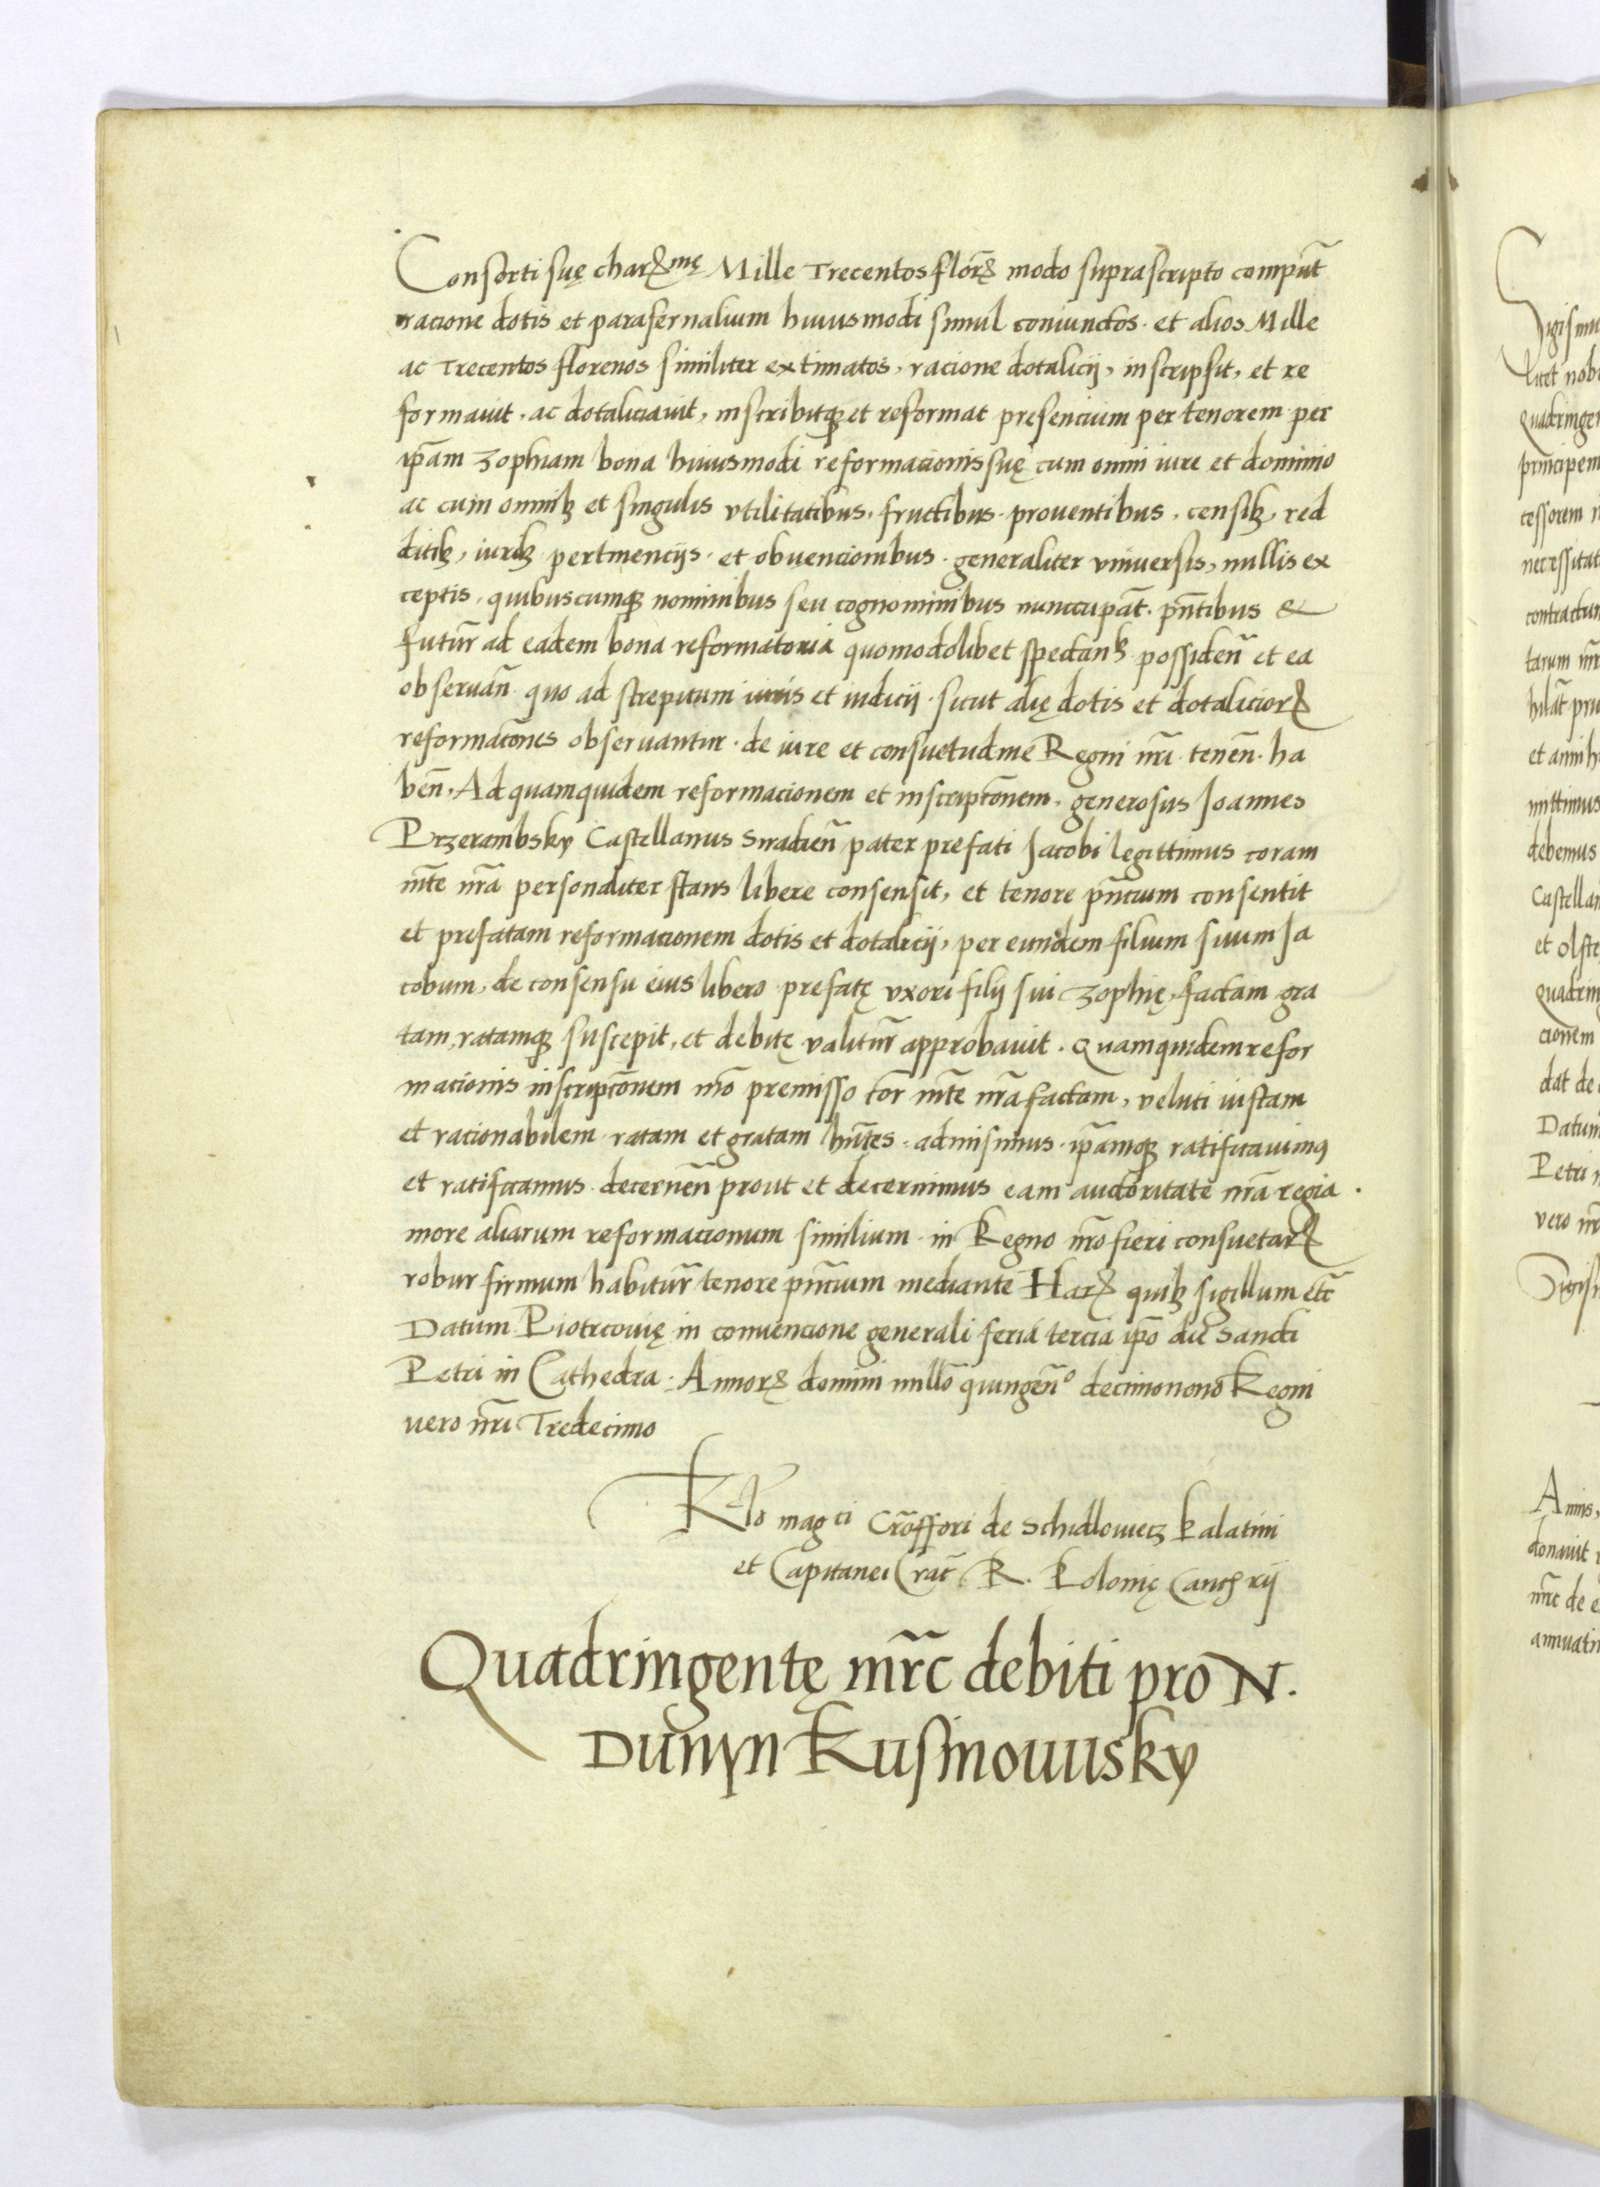 Consorti suę charꝝmę Mille Trecentos florꝝ modo suprascripto compūt
racione dotis et parafernalium huiusmodi simul coniunctos · et alios Mille
ac Trecentos florenos similiter extimatos, racione dotalicij, inscripsit, et re
formauit · ac dotaliciauit, inscribitqꝫ et reformat presencium per tenorem per
ip̄am Zophiam bona huiusmodi reformacionis suę cum omni iure et dominio
ac cum omnibꝫ et singulis vtilitatibus, fructibus · prouentibus, censibꝫ, red
ditibꝫ, iuribꝫ pertinencijs · et obuencionibus · generaliter vniuersis, nullis ex
ceptis, quibuscumqꝫ nominibus seu cognominibus nunccupāt · pn̄tibus &
futur̄ ad eadem bona reformatoria quomodolibet spectan̄ possiden̄ et ea
obseruan̄ quo ad strepitum iuris et iudicij · sicut alię dotis et dotaliciorꝝ
reformacōnes obseruantur · de iure et consuetudine Regni nr̄i tenen̄ · ha
ben̄, Ad quamquidem reformacionem et inscripcōnem, generosus Joannes
Przerambsky Castellanus Siradien̄ pater prefati Jacobi legittimus coram
mt̄e nr̄a personaliter stans libere consensit, et tenore pn̄cium consentit
et prefatam reformacionem dotis et dotalicij, per eundem filium suum Ja
cobum, de consensu eius libero prefatę vxori filij sui Zophię, factam gra
tam, ratamqꝫ suscepit, et debitę valitur̄ approbauit · Quamquidem refor
macionis inscripcōnem mō premisso cor̄ mt̄e nr̄a factam, veluti iustam
et racionabilem ratam et gratam hn̄tes · admisimus · ip̄amqꝫ ratificauimus
et ratificamus · decernen̄ prout et decernimus eam auctoritate nr̄a regia ·
more aliarum reformacionum similium in Regno nr̄o fieri consuetarꝝ
robur firmum habitur̄ tenore pn̄cium mediante Harꝝ quibꝫ sigillum etc̄
Datum Piotrcouię in conuencione generali feria tercia ip̄o die sancti
Petri in Cathedra · Annorꝝ domini mill̄o quingen̄o decimonono Regni
uero nr̄i Tredecimo
Rlo magci Cr̄offori de Schidlowiecz Palatini
et Capitanei Crac̄ R. Polonię Cancꝫrij
Quadringentę mr̄c debiti pro N.
Dunyn Kusmouusky